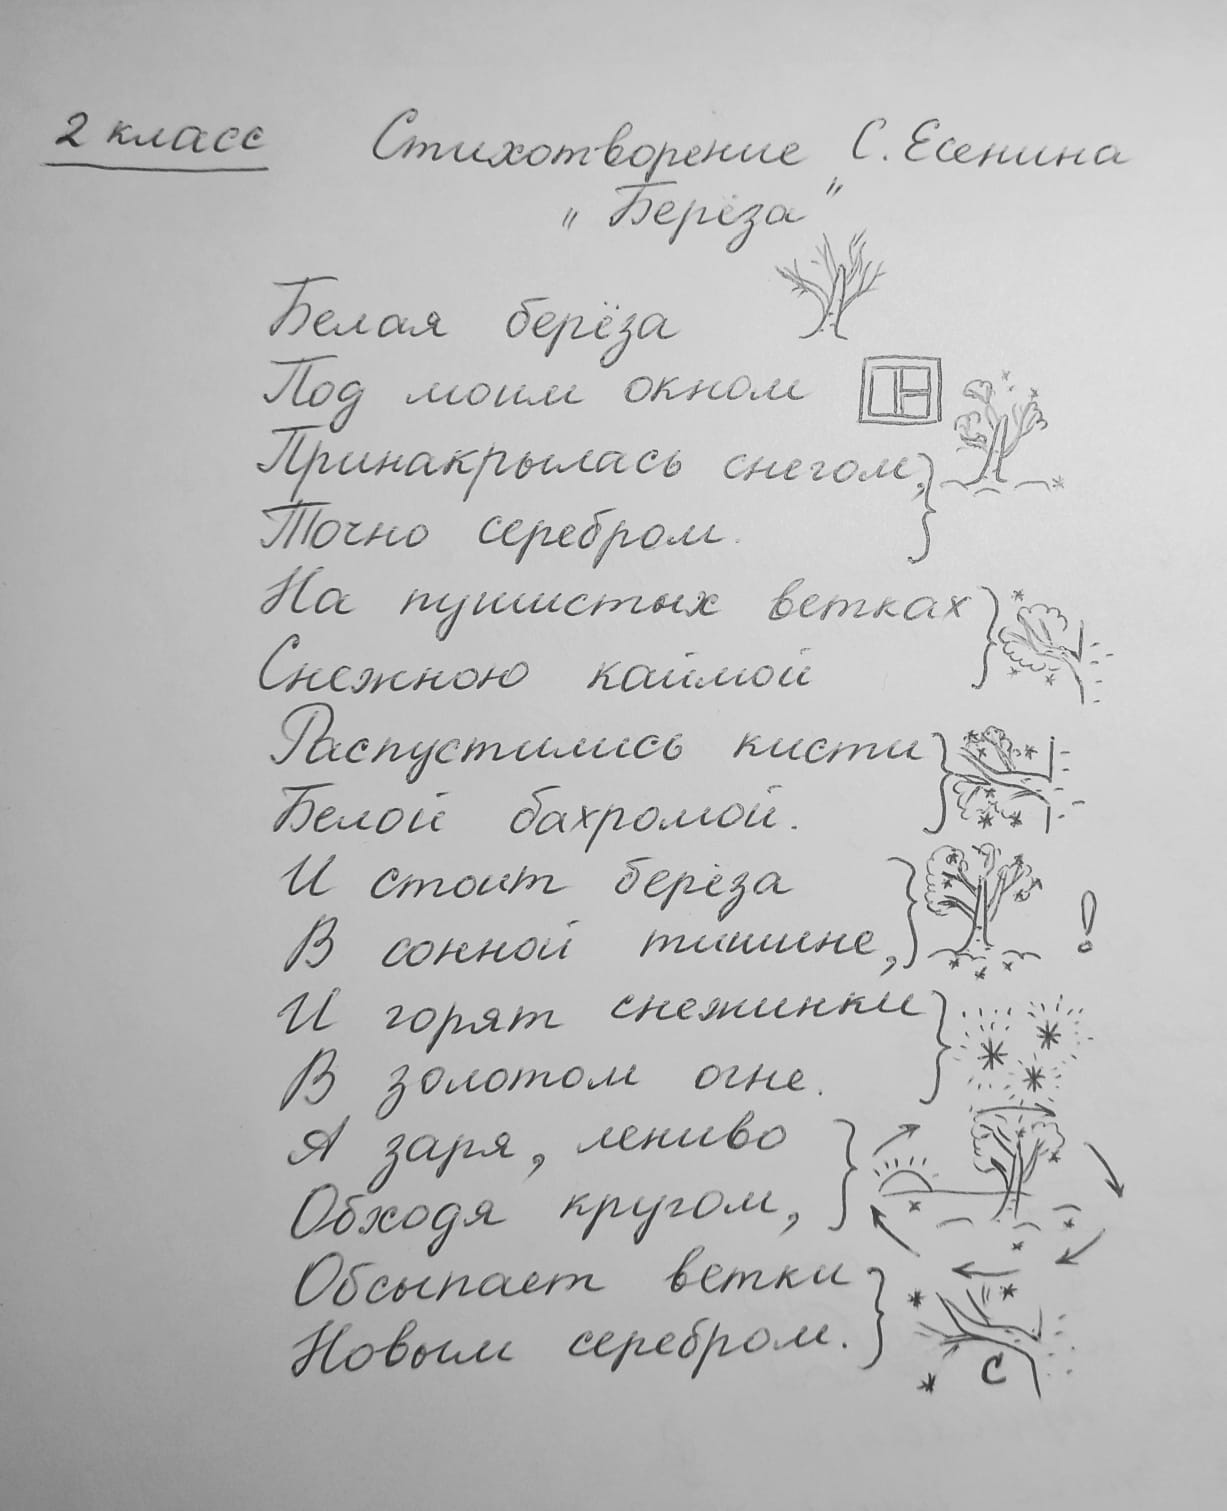 2 класс Стихотворение С. Есенина
„Берёза”
Белая берёза
Под моим окном
Принакрылась снегом,
Точно серебром.
На пушистых ветках
Снежною каймой
Распустились кисти
Белой бахромой.
И стоит берёза
В сонной тишине,
!
И горят снежинки
В золотом огне.
А заря, лениво
Обходя кругом,
Обсыпает ветки
Новым серебром.
С